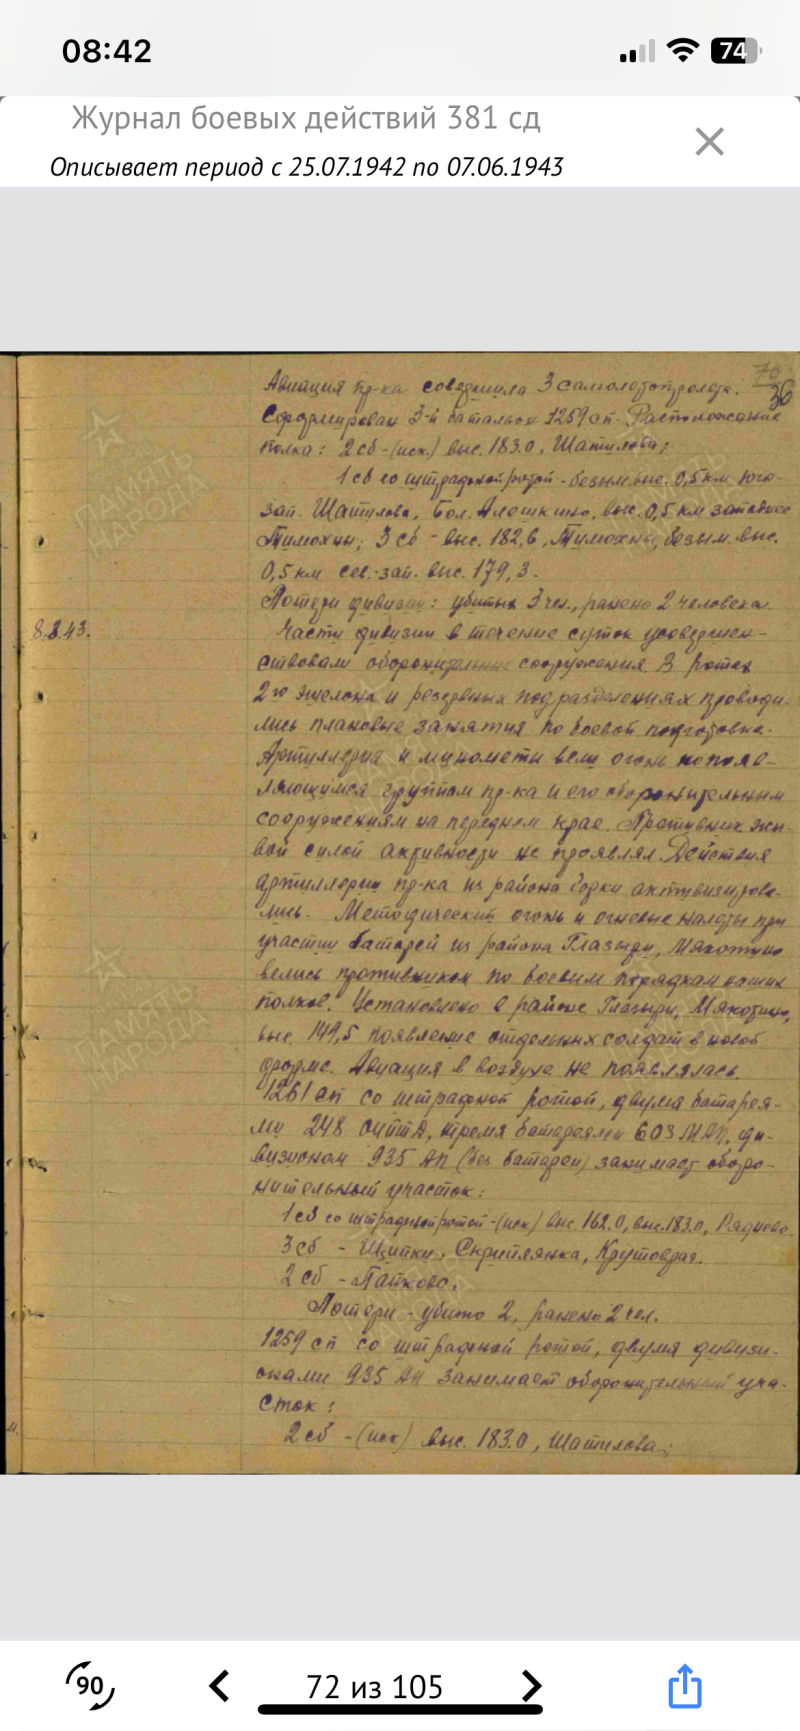 08:42
74
Журнал боевых действий 381 сд
Описывает период с 25.07.1942 по 07.06.1943
70
36
Авиация пр-ка совершила 3 самолетопролета.
Сформирован 3-й батальон 1259 сп. Расположение
полка: 2 сб - (иск.) выс. 183.0, Шатилова;
1 сб со штрафной ротой - безым. выс. 0,5 км юго-
зап. Шатилова, Бол. Алошкино, выс. 0,5 км западнее
Тимохны; 3 сб - выс. 182,6, Тимохны, безым. выс.
0,5 км сев.-зап. выс. 179,3.
Потери дивизии: убитых 3 чел., ранено 2 человека.
8.3.43.
Части дивизии в течение суток усовершен-
ствовали оборонительные сооружения. В ротах
2го эшелона и резервных подразделениях проводи-
лись плановые занятия по боевой подготовке.
Артиллерия и минометы вели огонь по появ-
ляющимся группам пр-ка и его оборонительным
сооружениям на переднем крае. Противник жи-
вой силой активности не проявлял. Действия
артиллерии пр-ка из района Горки активизирова-
лись. Методический огонь и огневые налеты при
участии батарей из района Глазыри, Мякотино
велись противником по боевым порядкам наших
полков. Установлено в районе Глазыри, Мякотино,
выс. 149,5 появление отдельных солдат в новой
форме. Авиация в воздухе не появлялась.
1261 сп со штрафной ротой, двумя батарея-
ми 248 оиптд, тремя батареями 603 МАП, ди-
визионом 935 АП (без батареи) занимает оборо-
нительный участок:
1 сб со штрафной ротой - (иск) выс. 162.0, выс. 183.0,
3 сб - Щипки, Скриплянка, Крутовраг.
2 сб - Папково.
Потери - убито 2, ранено 2 чел.
1259 сп со штрафной ротой, двумя дивизи-
онами 935 АП занимает оборонительный уча-
сток:
2 сб - (иск) выс. 183.0, Шатилова;
ПАМЯТЬ
НАРОДА
90
72 из 105